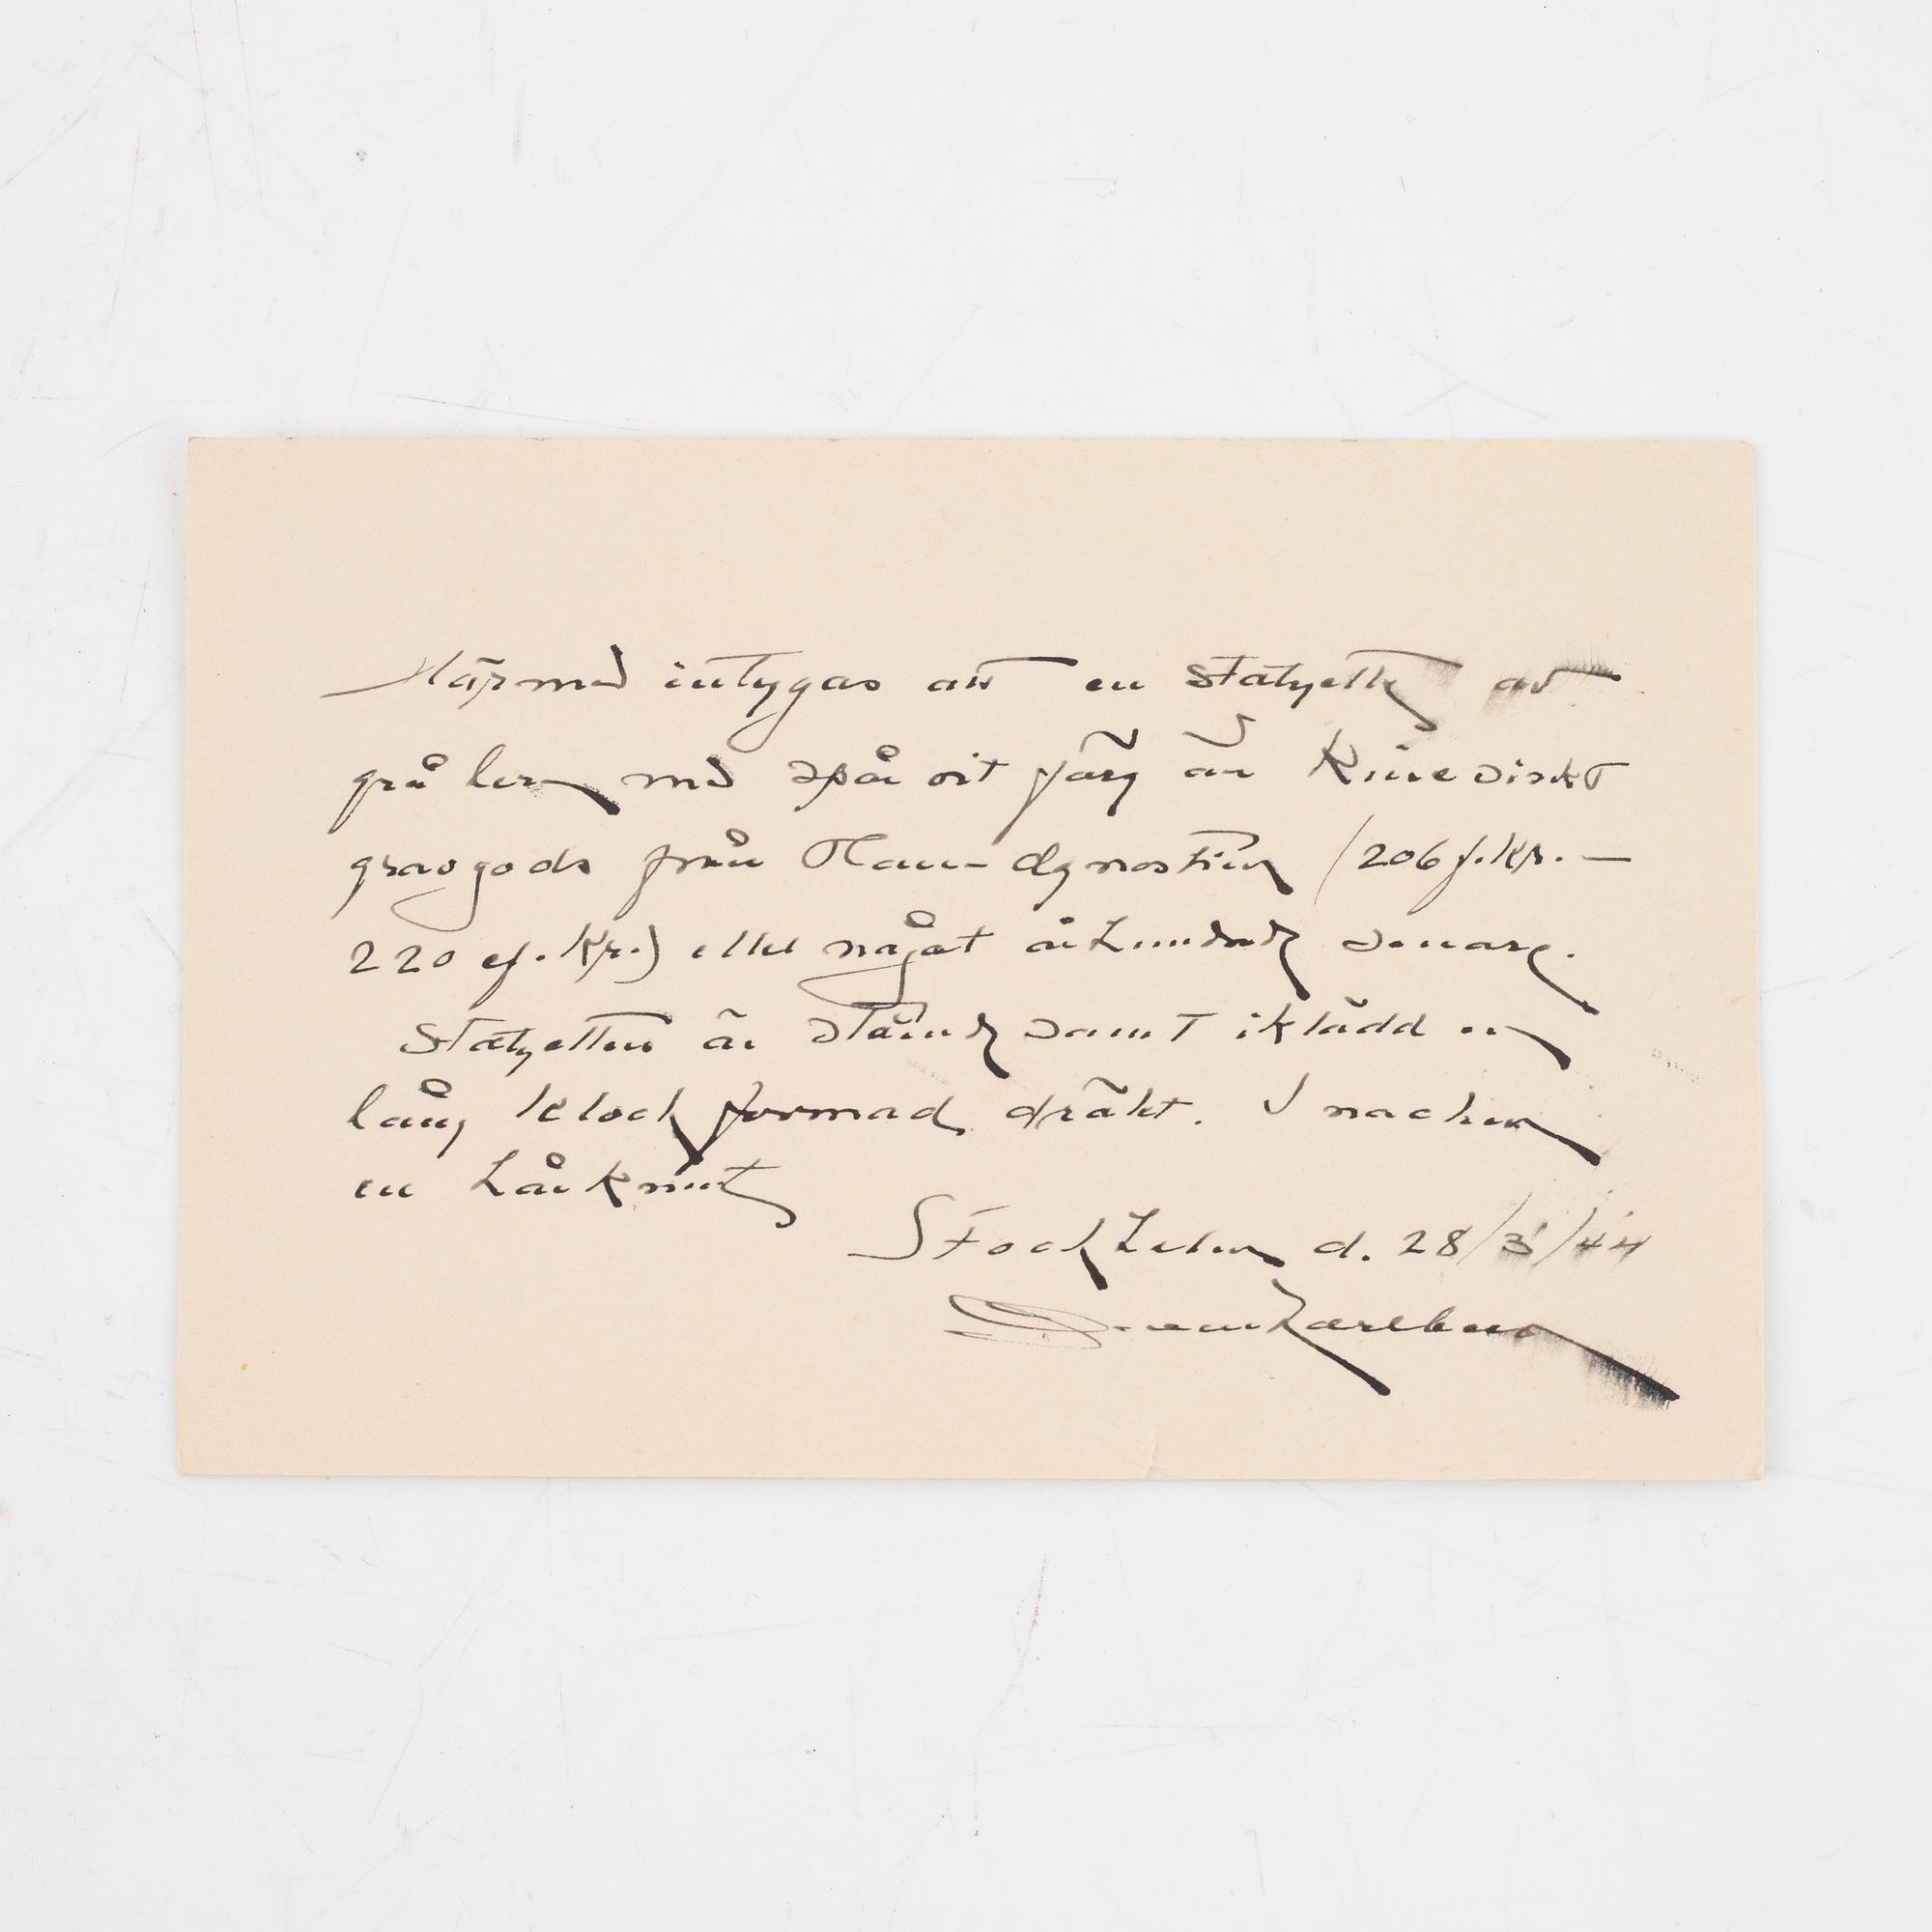 Härmed intygas att en statyett av
grå lera med spår vit färg är Kinesiskt
gravgods från Han-dynastien (206 f.Kr. –
220 ef. Kr.) eller något århundrade senare.
Statyetten är stående samt iklädd en
lång klockformad dräkt. I nacken
en hårknut
Stockholm d. 28/3/44
Orvar Karlbeck